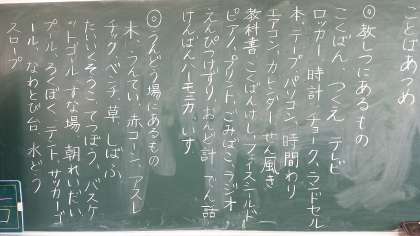 ことばあつめ
◎教しつにあるもの
こくばん、つくえ、テレビ
ロッカー、時計、チョーク、ランドセル
本、テープ、パソコン、時間わり
エアコン、カレンダー、せん風き
教科書、こくばんけし、フェイスシールド
ピアノ、プリント、ごみばこ、ラジオ
えんぴつけずり、おんど計、でん話
けんばんハーモニカ、いす
◎うんどう場にあるもの
木、うんてい、赤コーン、アスレ
チック、ベンチ、草、しばふ
たいいくそうこ、てつぼう、バスケ
ットゴール、すな場、朝れいだい
プール、ろくぼく、テント、サッカーゴ
ール、なわとび台、水どう
スロープ